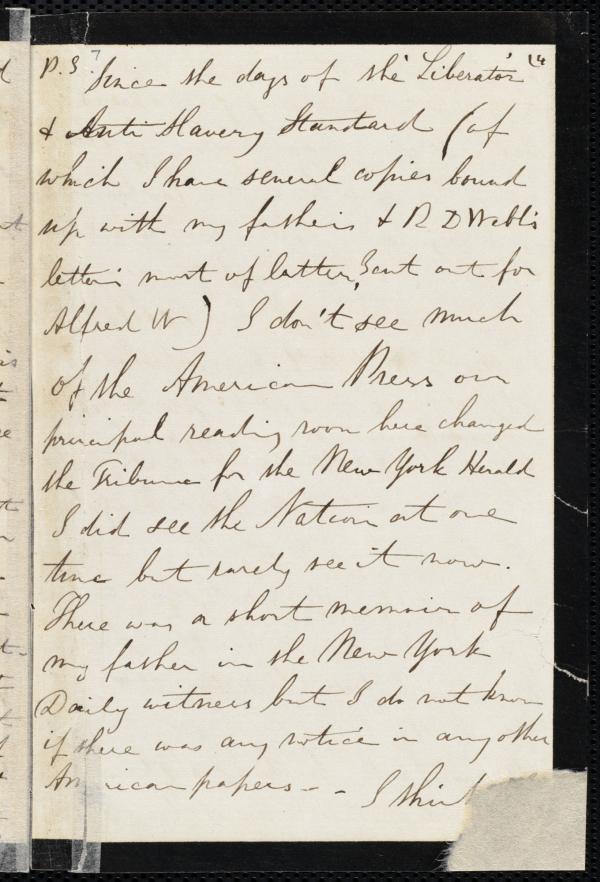 P. S. Since the days of the Liberator
& Anti Slavery Standard (of
which I have several copies bound
up with my father's & R D Webb's
letters most of latter, cut out for
Alfred W) I don't see much
of the American Press our
principal reading room here changed
the Tribune for the New York Herald
I did see the Nation at one
time but rarely see it now.
There was a short memoir of
my father in the New York
Daily witness but I do not know
if there was any notice in any other
American papers - - I think